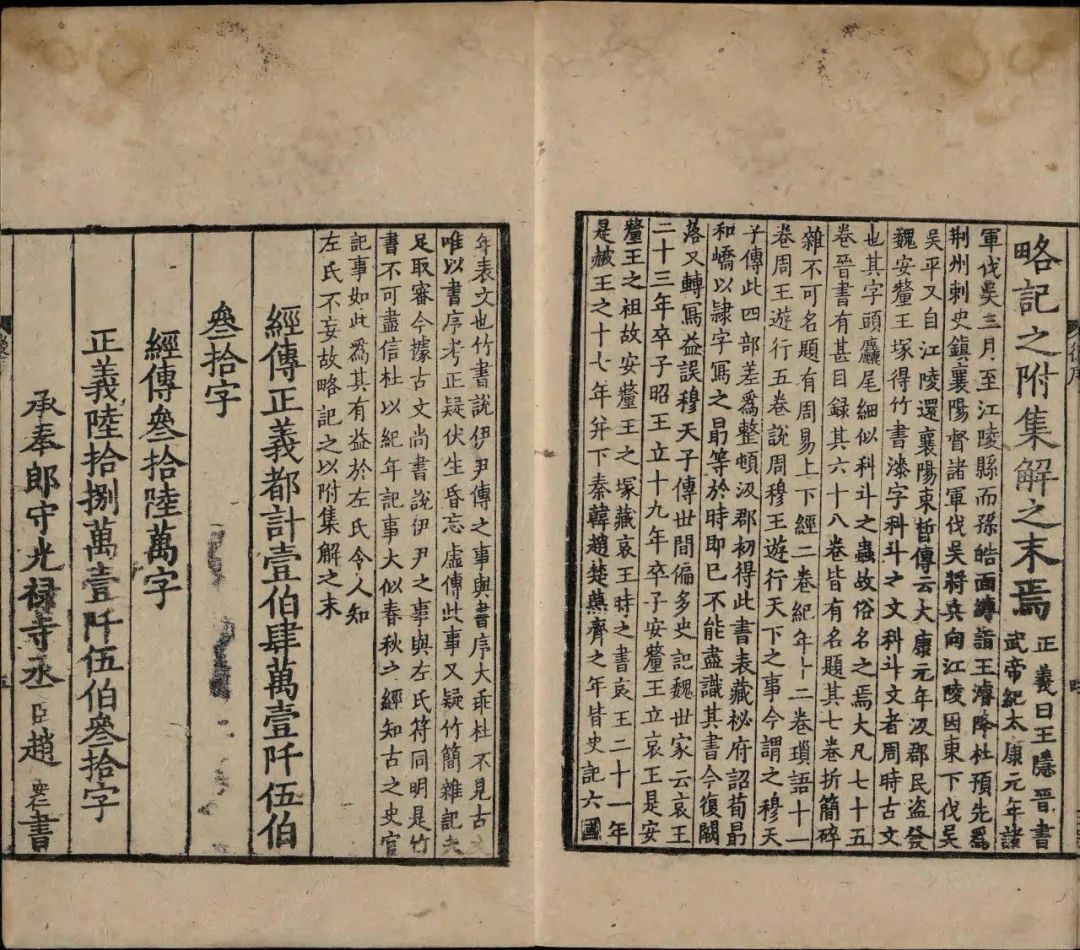 略記之附集解之末焉
正義曰王隱晉書
武帝紀太康元年諸
軍伐吳三月至江陵縣而孫皓面縛詣王濬降杜預先爲
荆州刺史鎮襄陽督諸軍伐吳將兵向江陵因東下伐吳
吳平又自江陵還襄陽束晳傳云大康元年汲郡民盜發
魏安釐王塚得竹書漆字科斗之文科斗文者周時古文
也其字頭麤尾細似科斗之蟲故俗名之焉大凡七十五
卷晉書有其目録其六十八卷皆有名題其七卷折簡碎
雜不可名題有周易上下經二卷紀年十二卷瑣語十一
卷周王遊行五卷說周穆王遊行天下之事今謂之穆天
子傳此四部差爲整頓汲郡初得此書表藏祕府詔荀勗
和嶠以隸字寫之勗等於時即已不能盡識其書今復闕
落又轉寫益誤穆天子傳世間偏多史記魏世家云哀王
二十三年卒子昭王立十九年卒子安釐王立哀王是安
釐王之祖故安釐王之塚藏哀王時之書哀王二十一年
是赧王之十七年并下秦韓趙楚燕齊之年皆史記六國
年表文也竹書說伊尹傳之事與書序大乖杜不見古文
唯以書序考正疑伏生昏忘虛傳此事又疑竹簡雜記夫
足取審今據古文尚書說伊尹之事與左氏符同明是竹
書不可盡信杜以紀年記事大似春秋之經知古之史官
記事如此爲其有益於左氏令人知
左氏不妄故略記之以附集解之末
經傳正義都計壹伯肆萬壹阡伍伯
叄拾字
經傳叄拾陸萬字
正義陸拾捌萬壹阡伍伯叄拾字
承奉郎守光禄寺丞臣趙安仁書